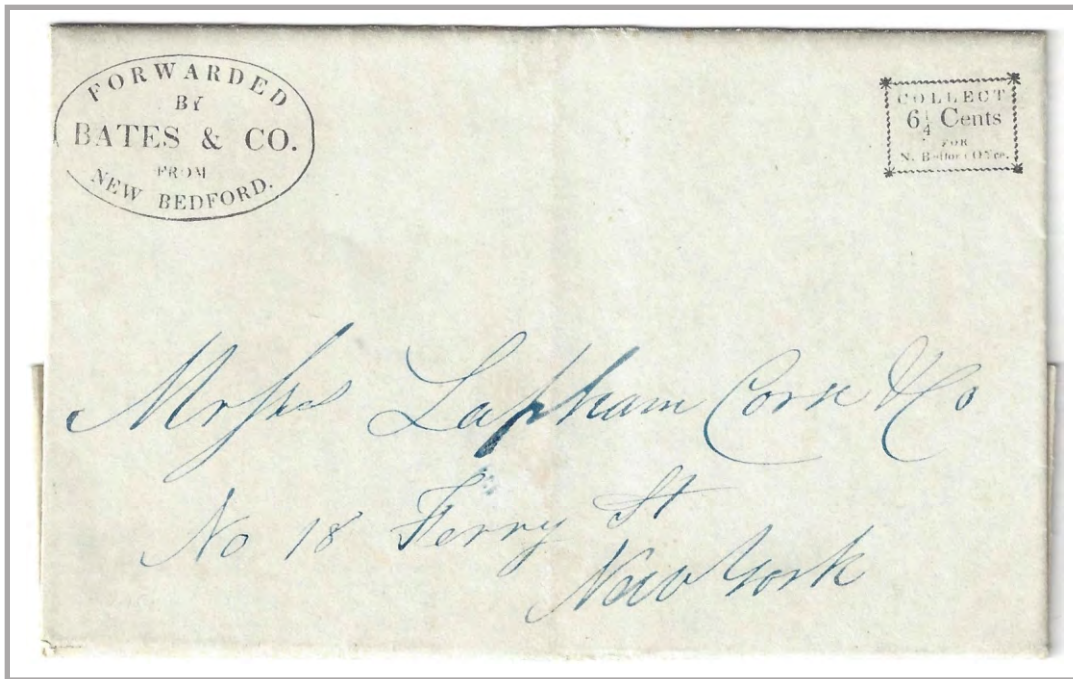 FORWARDED
BY
BATES & CO.
FROM
NEW BEDFORD.
COLLECT
6¼ Cents
FOR
N. Bedford Office.
Messrs Lapham Corse & Co
No 18 Ferry St
New York